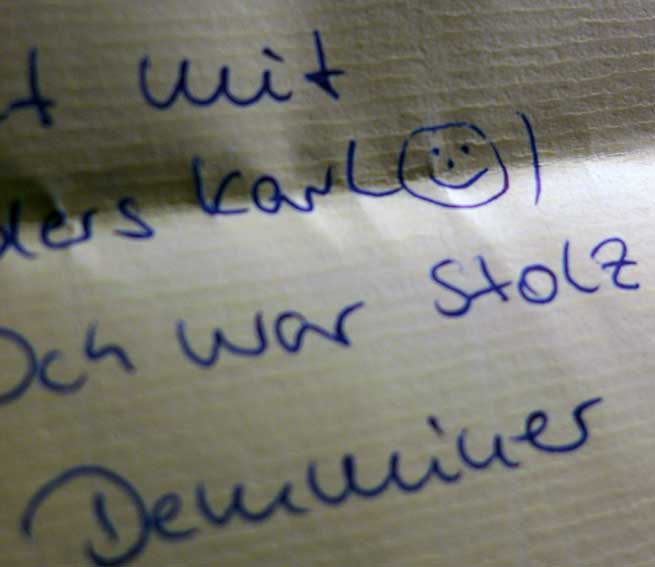 t mit
ders Karl ☺)
Och war stolz
Demminer